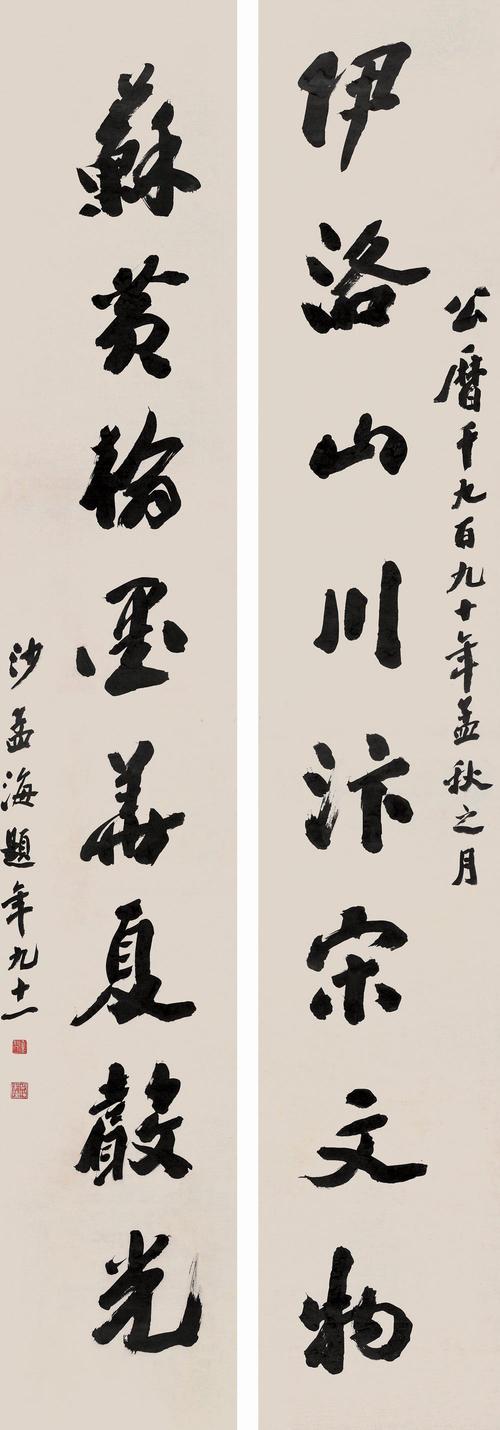 公曆千九百九十年孟秋之月
伊洛山川汴宋文物
蘇黃翰墨華夏聲光
沙孟海題年九十一